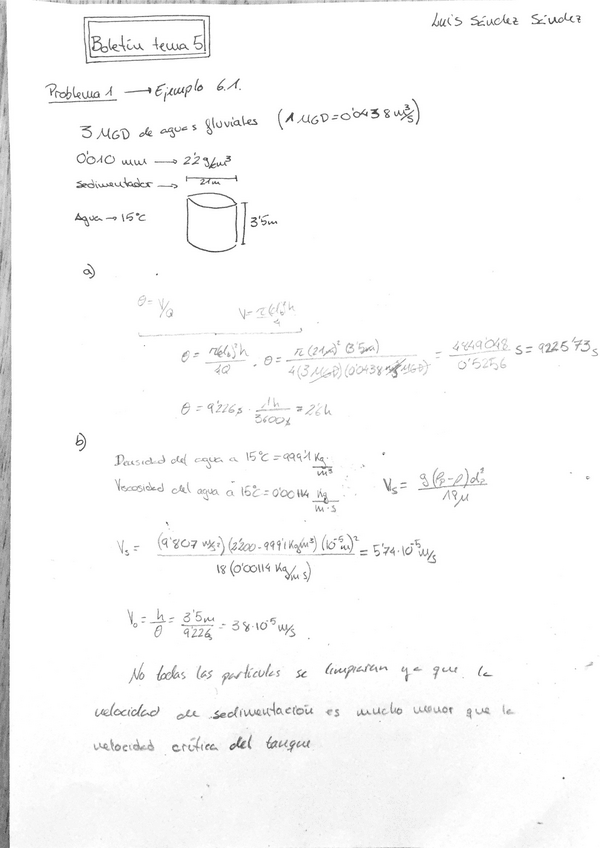 Luis Sández Sández
Boletín tema 5
Problema 1 → Ejemplo 6.1.
3 MGD de aguas fluviales (1 MGD=0'0438 m³/s)
0'010 mm → 2'2 g/cm³
sedimentador →
21m
Agua → 15°C
3'5m
a)
θ = V/Q V = π(d)²h/4
θ = π(d)²h/4Q . θ = π(21m)²(3'5m)/4(3 MGD)(0'0438 m³/s MGD) = 4849'048/0'5256 s = 9225'73 s
θ = 9226 s · 1h/3600s = 2'6h
b)
Densidad del agua a 15°C = 999'1 Kg/m³
Viscosidad del agua a 15°C = 0'00114 Kg/m·s
Vs = g(ρp-ρ)dp²/18μ
Vs = (9'807 m/s²)(2200-999'1 Kg/m³)(10⁻⁵ m)²/18(0'00114 Kg/m s) = 5'74·10⁻⁵ m/s
V₀ = h/θ = 3'5m/9226s = 38·10⁻⁵ m/s.
No todas las partículas se limpiaran ya que la
velocidad de sedimentación es mucho menor que la
velocidad crítica del tanque